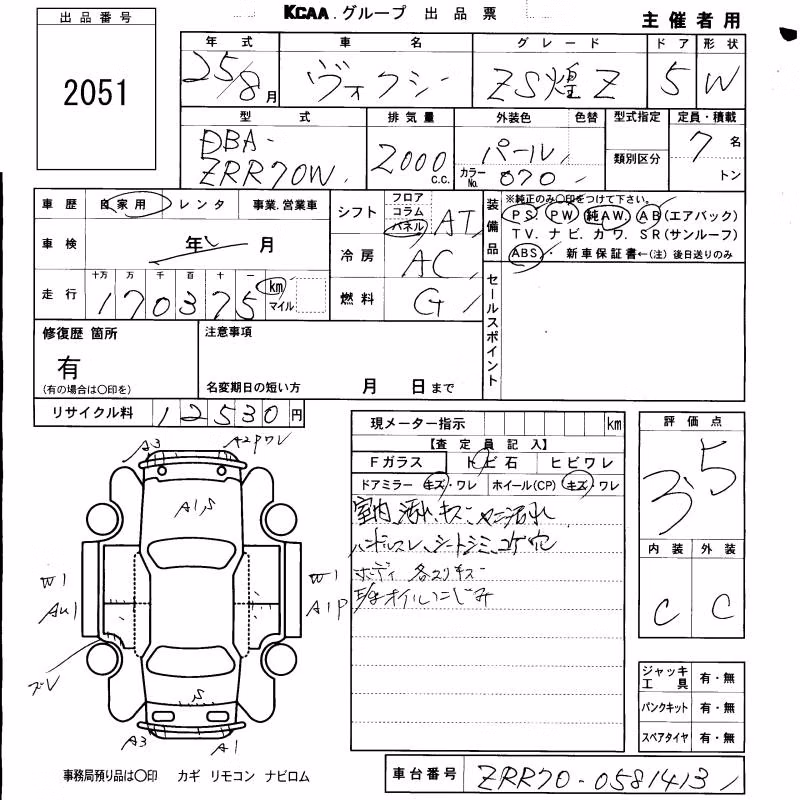 KCAA グループ 出品票
主催者用
出品番号
2051
年式 車名 グレード ドア 形状
25/8月 ヴォクシー ZS煌Z 5 W
型式 排気量 外装色 色替 型式指定 定員・積載
DBA-ZRR70W 2000 c.c. パール 7名
カラーNo. 070 類別区分 トン
車歴 自家用 レンタ 事業.営業車
車検 年 月
走行 十万 万 千 百 十 一
170375 km マイル
シフト フロア コラム パネル AT
冷房 AC
燃料 G
装備品 ※純正のみ〇印をつけて下さい。
PS PW 純AW. AB(エアバック)
TV. ナビ. カワ. SR(サンルーフ)
ABS ・ 新車保証書←(注) 後日送りのみ
セールスポイント
修復歴 箇所
有
(有の場合は〇印を)
注意事項
名変期日の短い方 月 日まで
リサイクル料 12530円
現メーター指示 km
【査定員記入】
Fガラス トビ石 ヒビワレ
ドアミラー キズ・ワレ ホイール(CP) キズ・ワレ
室内 汚れ キズ ヤニ汚れ
ハンドルスレ、シートシミ、コゲ穴
ボディ 各スリキズ
オイルにじみ
評価点
3.5
内装 外装
C C
A3 A2Pワレ
A1,S
W1 W1
AU1 A1P
S
A3 A1
事務局預り品は〇印 カギ リモコン ナビロム
ジャッキ工具 有・無
パンクキット 有・無
スペアタイヤ 有・無
車台番号 ZRR70-0581413